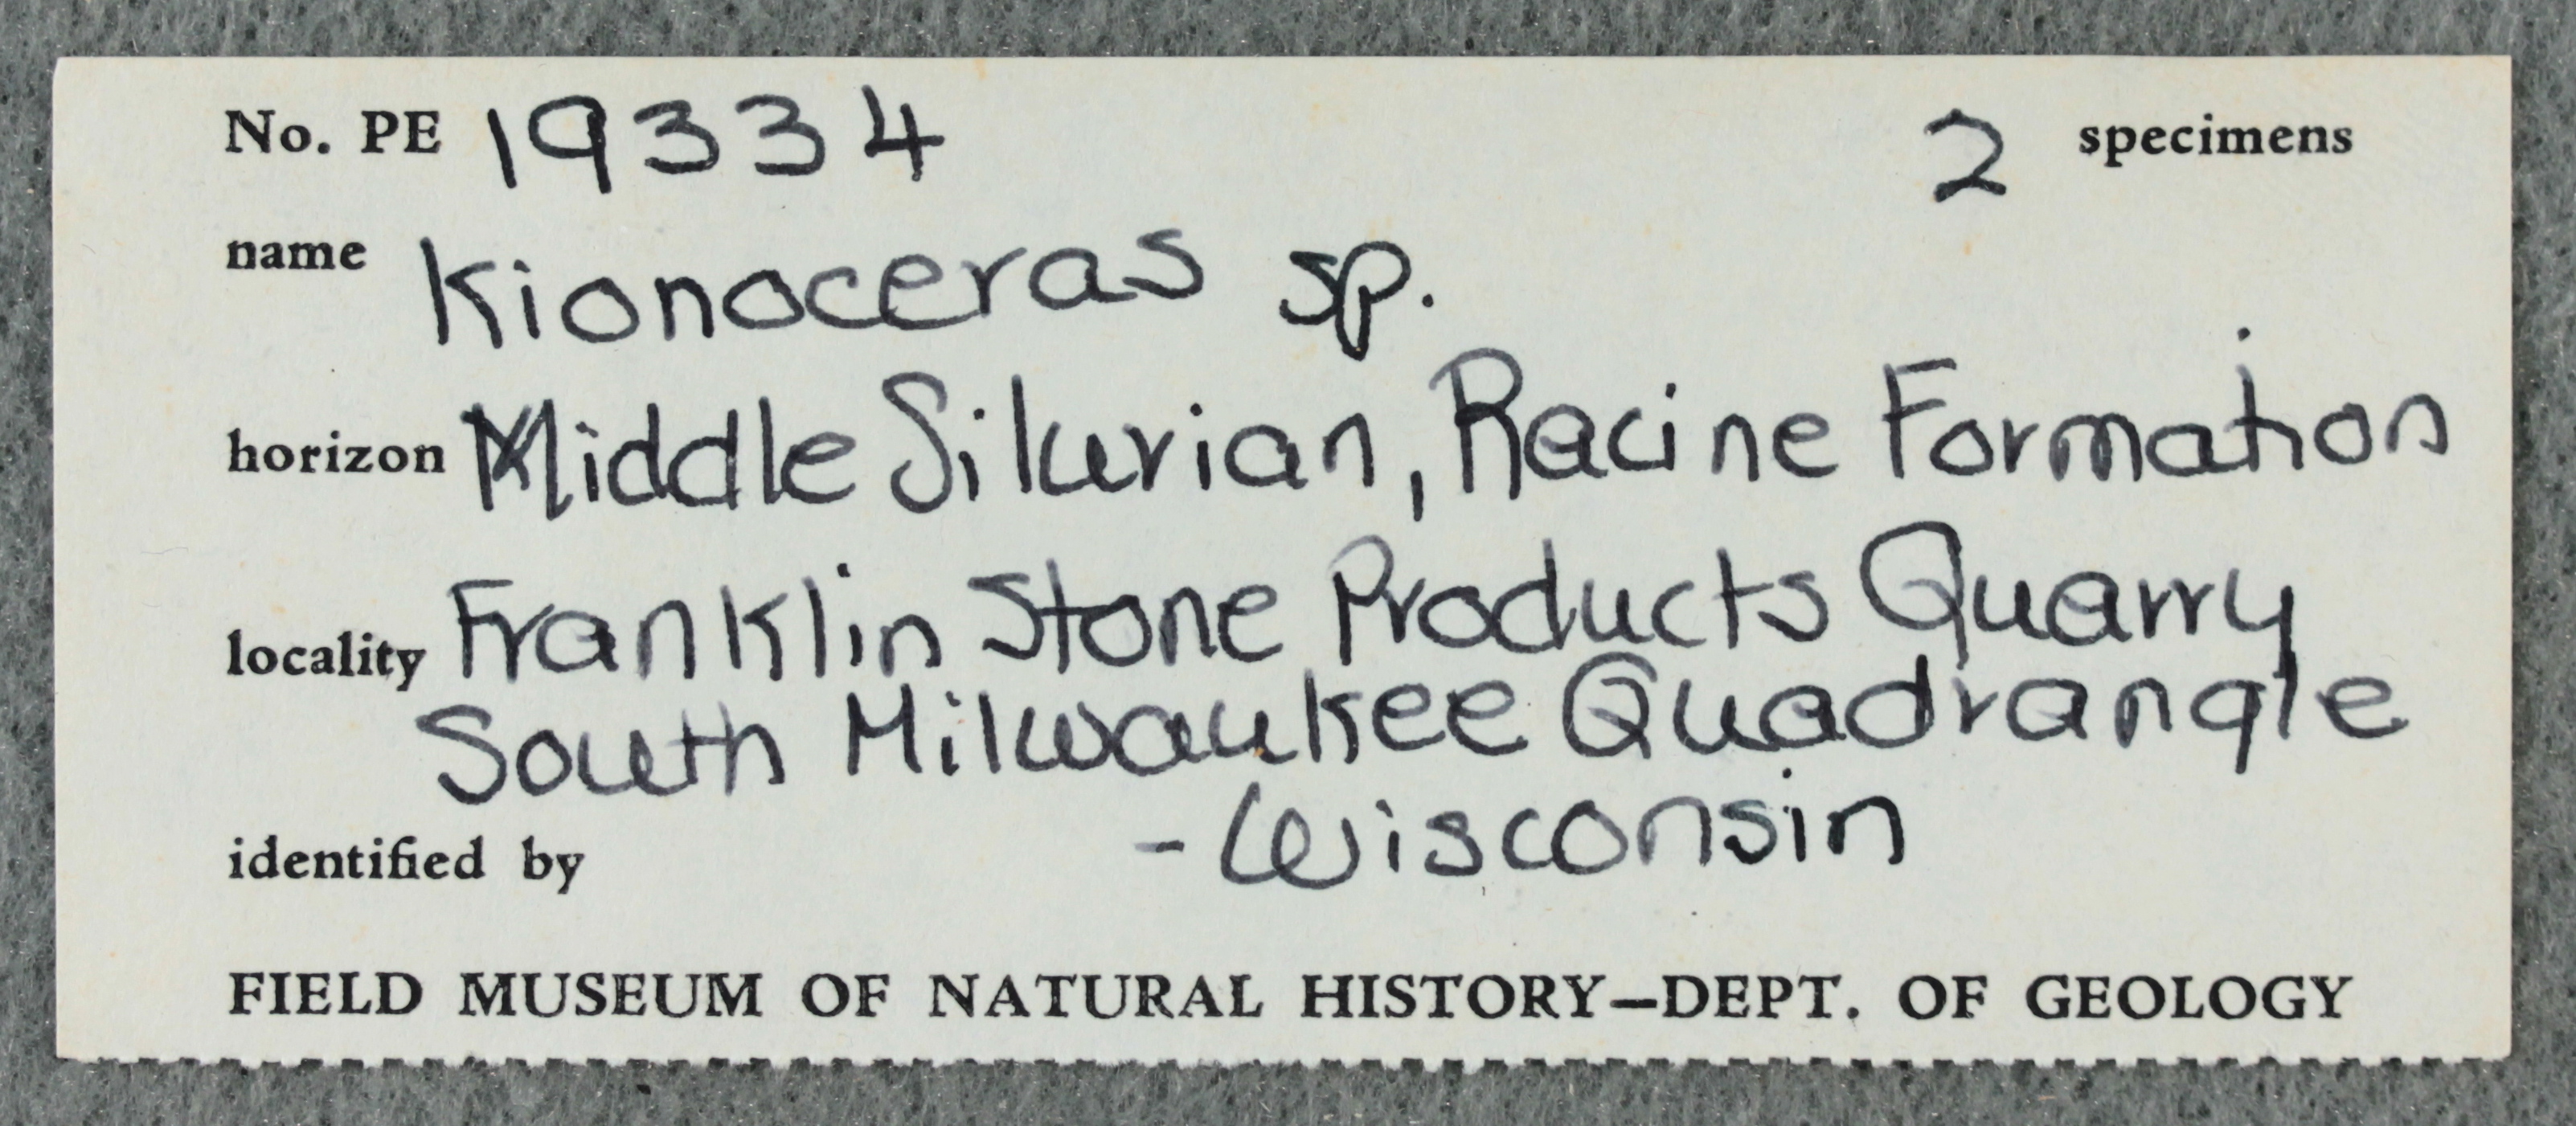 No. PE 19334 2 specimens
name Kionoceras sp.
horizon Middle Silurian, Racine Formation
locality Franklin Stone Products Quarry
South Milwaukee Quadrangle
- Wisconsin
identified by
FIELD MUSEUM OF NATURAL HISTORY—DEPT. OF GEOLOGY